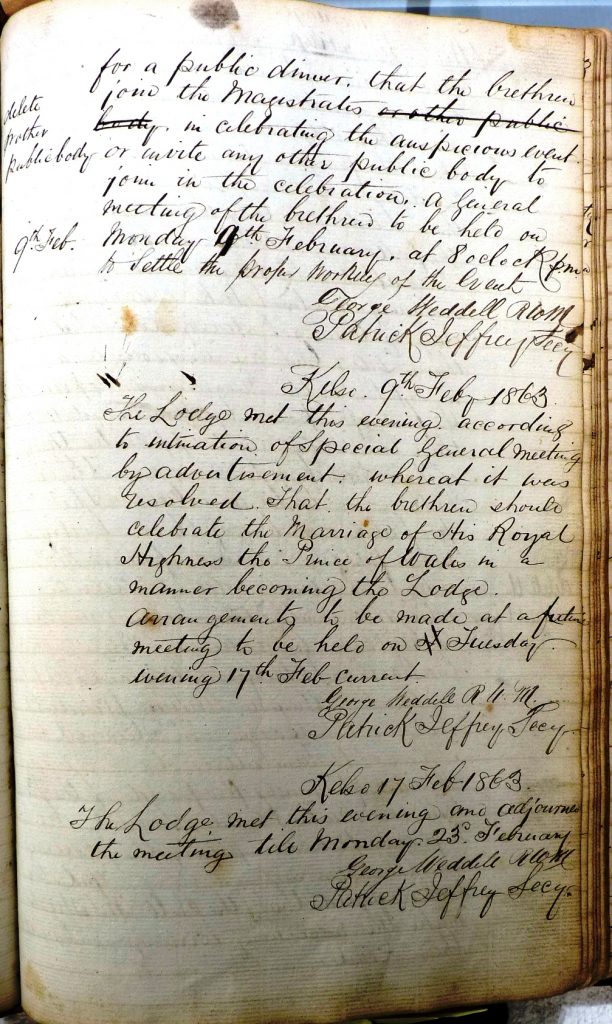 for a public dinner. that the brethren
join the Magistrates or other public
body. in celebrating the auspicious event.
or invite any other public body to
join in the celebration. A General
meeting of the brethren to be held on
Monday 9th February. at 8 oclock p.m
to Settle the proper working of the Event
George Weddell R W M
Patrick Jeffrey Secy
delete
or other
public body
9th Feb.
Kelso. 9th Feby 1863
The Lodge met this evening. according
to intimation of Special General Meeting
by advertisement. whereat it was
resolved. That the brethren should
celebrate the Marriage of His Royal
Highness the Prince of Wales in a
manner becoming the Lodge.
arrangements to be made at a future
meeting to be held on Tuesday
evening 17th Feb current
George Weddell R. W. M.
Patrick Jeffrey Secy
Kelso 17 Feb 1863.
The Lodge met this evening and adjourned
the meeting till Monday 23d February
George Weddell R W M
Patrick Jeffrey Secy.